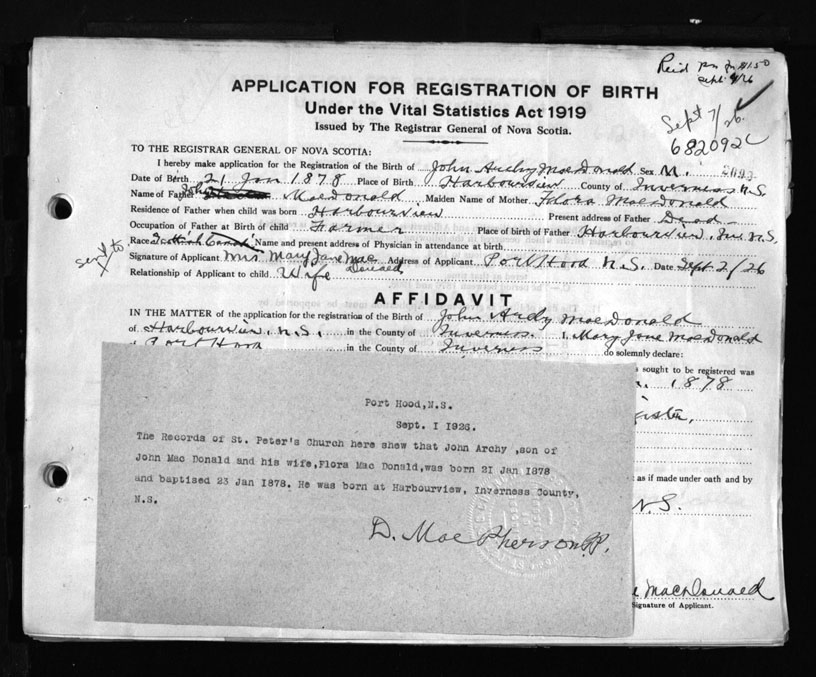 Reid
Sept 7/26
APPLICATION FOR REGISTRATION OF BIRTH
Under the Vital Statistics Act 1919
Issued by The Registrar General of Nova Scotia.
Sept 7/26
682092
TO THE REGISTRAR GENERAL OF NOVA SCOTIA:
I hereby make application for the Registration of the Birth of John Archy MacDonald Sex M.
Date of Birth 21 Jan 1878 Place of Birth Harbourview County of Inverness N.S.
Name of Father John MacDonald Maiden Name of Mother Flora MacDonald
Residence of Father when child was born Harbourview Present address of Father Dead
Occupation of Father at Birth of child Farmer Place of birth of Father Harbourview, Inv. N.S.
sent to
Race Scottish Name and present address of Physician in attendance at birth
Signature of Applicant Mrs Mary Jane Mac Donald Address of Applicant Port Hood N.S. Date Sept. 2/26
Relationship of Applicant to child Wife
AFFIDAVIT
IN THE MATTER of the application for the registration of the Birth of John Archy MacDonald
of Harbourview, N.S. in the County of Inverness. I, Mary Jane MacDonald
of Port Hood in the County of Inverness do solemnly declare:
sought to be registered was
1878
Port Hood,N.S.
Sept. I 1926.
The Records of St. Peter's Church here shew that John Archy ,son of
John Mac Donald and his wife,Flora Mac Donald,was born 2I Jan 1878
and baptised 23 Jan 1878. He was born at Harbourview, Inverness County,
N.S.
D. MacPherson P.P.
as if made under oath and by
N.S.
MacDonald
Signature of Applicant.